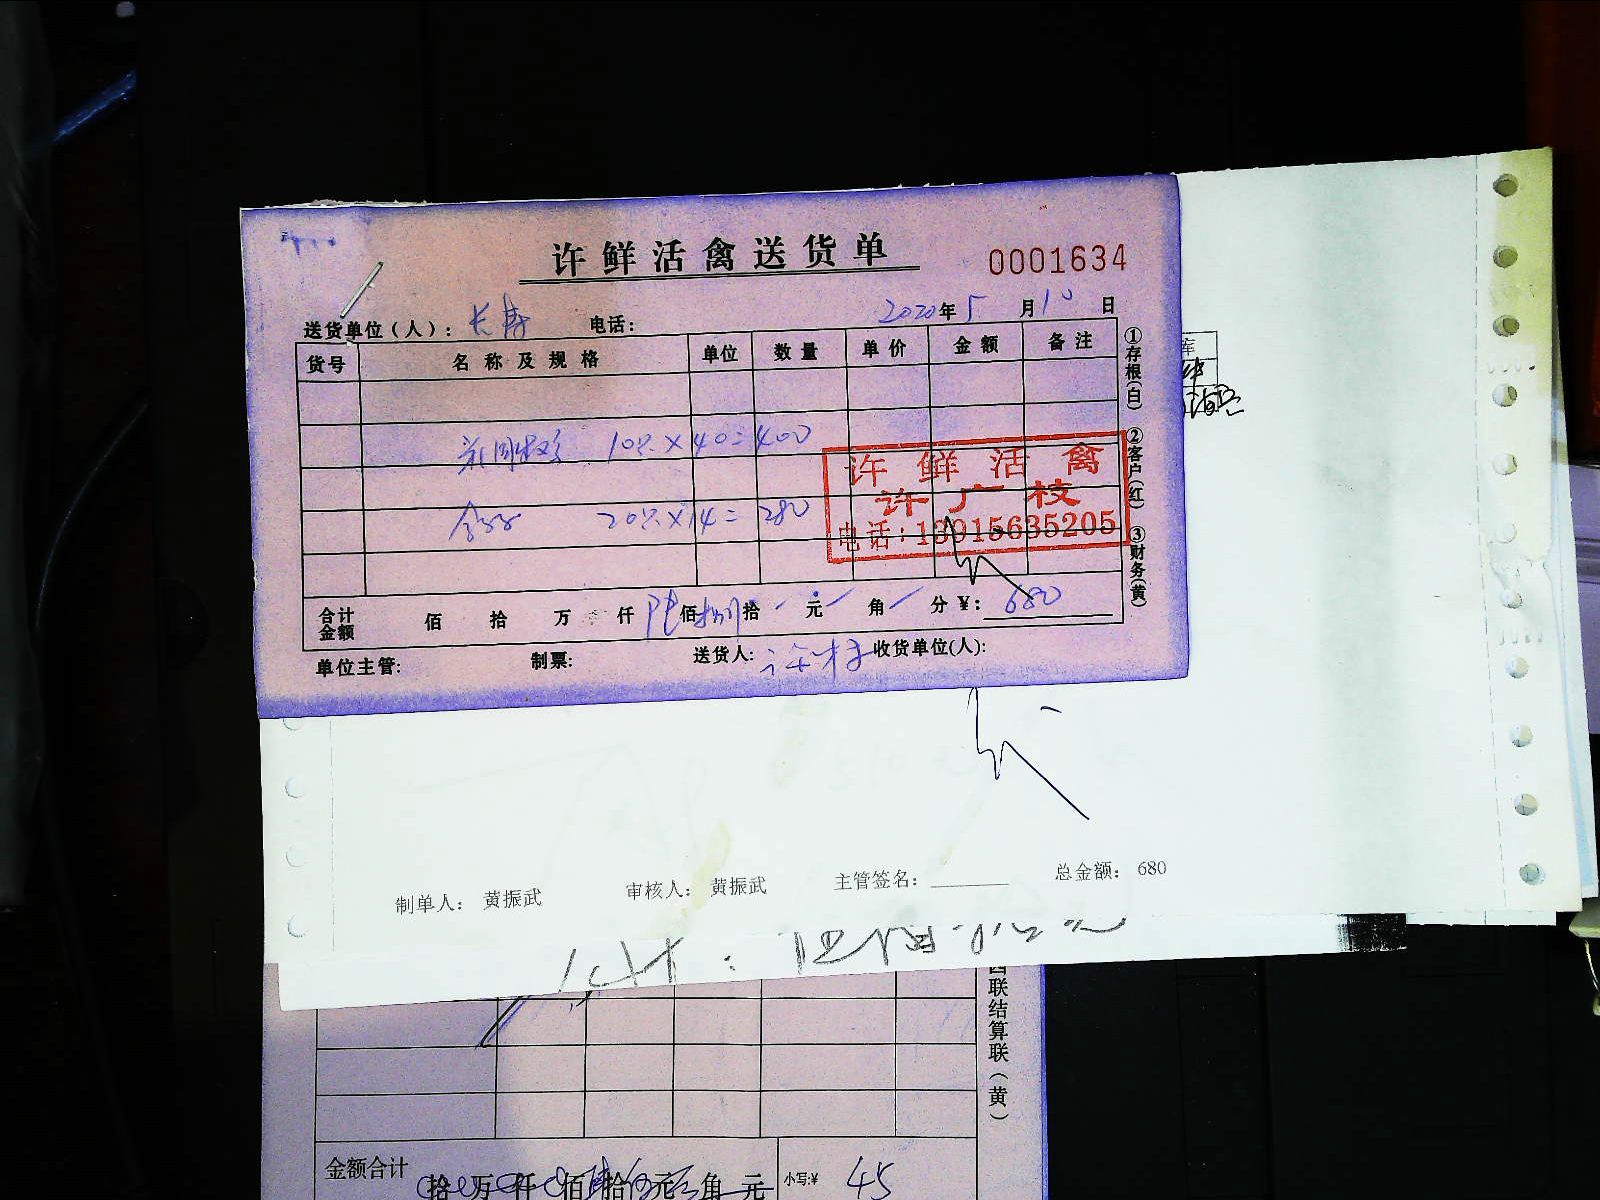 许鲜活禽送货单
0001634
送货单位(人): 长寿 电话: 2020年5月10日
货号 名称及规格 单位 数量 单价 金额 备注
10只×40=400
20只×14=280
许鲜活禽
许广枝
电话:13915635205
合计金额 佰 拾 万 仟 陆佰捌拾 元 角 分 ¥: 680
单位主管: 制票: 送货人: 许枝 收货单位(人):
①存根(白) ②客户(红) ③财务(黄)
库
制单人: 黄振武 审核人: 黄振武 主管签名: 总金额: 680
四联结算联(黄)
金额合计 拾 万 仟 佰 拾 元 角 元 小写:¥ 45